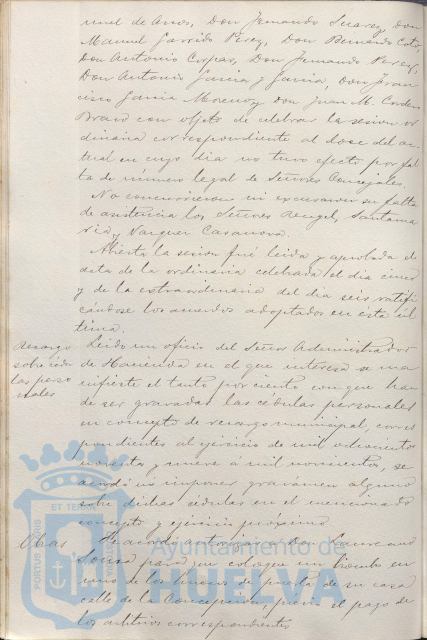 nuel de Amos, Don Fernando Suarez, Don
Manuel Garrido Perez, Don Bernardo Coto,
Don Antonio Corpas, Don Fernando Perez,
Don Antonio Garcia y Garcia, Don Fran
cisco Garcia Moreno y Don Juan M. Cordero
Bravo con objeto de celebrar la sesion or
dinaria correspondiente al doce del ac
tual en cuyo dia no tuvo efecto por fal
ta de número legal de Señores Concejales.
No concurrieron ni excusaron su falta
de asistencia los Señores Rengel, Santama
ria y Vazquez Casanova.
Abierta la sesion fué leida y aprobada el
acta de la ordinaria celebrada el dia cinco
y de la extraordinaria del dia seis ratifi
cándose los acuerdos adoptados en esta úl
tima.
Recargo
sobre cédu
las perso
nales
Leido un oficio del Señor Administrador
de Hacienda en el que interesa se ma
nifieste el tanto por ciento con que han
de ser gravadas las cédulas personales
en concepto de recargo municipal, corres
pondientes al ejercicio de mil ochocientos
noventa y nueve á mil novecientos, se
acordó no imponer gravámen alguno
sobre dichas cédulas en el mencionado
concepto y ejercicio próximo.
Obras
Se acordó autorizar á Don Laureano
para que coloque un
uno de los de puerta de su casa
calle de la Concepcion, previo el pago de
los arbitrios correspondientes
Ayuntamiento de
HUELVA
PORTUS MARIS
ET TERRAE